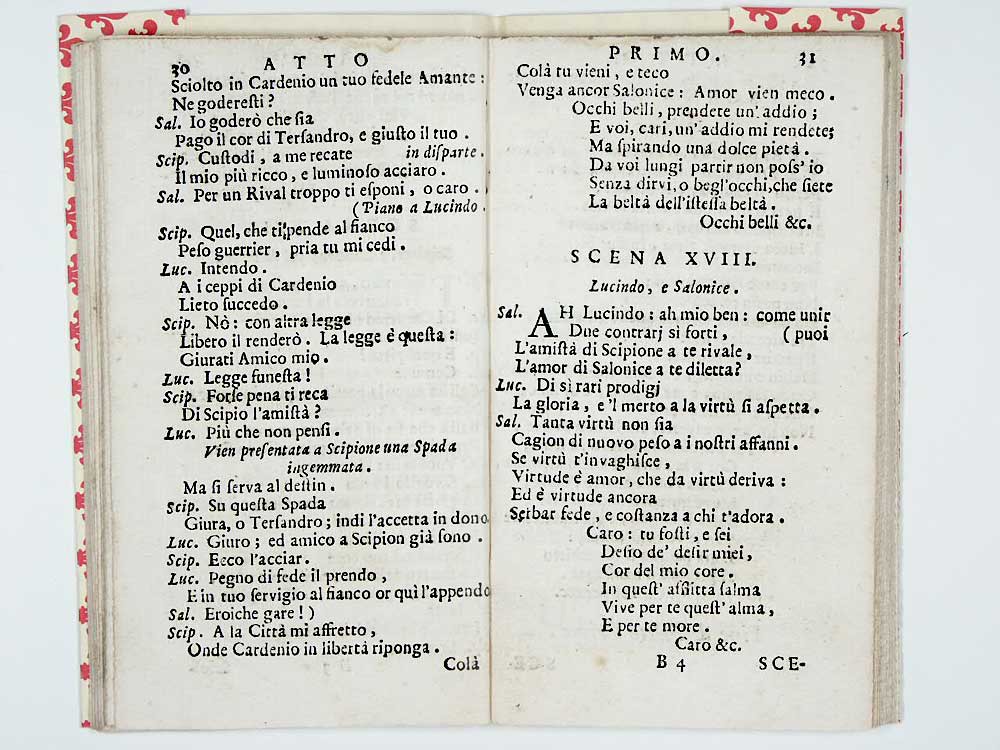 30 ATTO
Sciolto in Cardenio un tuo fedele Amante :
Ne goderesti ?
Sal. Io goderò che sia
Pago il cor di Tersandro, e giusto il tuo .
Scip. Custodi , a me recate in disparte .
Il mio più ricco, e luminoso acciaro .
Sal. Per un Rival troppo ti esponi , o caro .
( Piano a Lucindo .
Scip. Quel, che ti pende al fianco
Peso guerrier , pria tu mi cedi .
Luc. Intendo .
A i ceppi di Cardenio
Lieto succedo .
Scip. Nò : con altra legge
Libero il renderò. La legge è questa :
Giurati Amico mio .
Luc. Legge funesta !
Scip. Forse pena ti reca
Di Scipio l'amistà ?
Luc. Più che non pensi .
Vien presentata a Scipione una Spada
ingemmata .
Ma si serva al destin .
Scip. Su questa Spada
Giura, o Tersandro ; indi l'accetta in dono
Luc. Giuro ; ed amico a Scipion già sono .
Scip. Ecco l'acciar .
Luc. Pegno di fede il prendo ,
E in tuo servigio al fianco or quì l'appendo
Sal. Eroiche gare ! )
Scip. A la Città mi affretto ,
Onde Cardenio in libertà riponga .
Colà
PRIMO. 31
Colà tu vieni , e teco
Venga ancor Salonice : Amor vien meco .
Occhi belli , prendete un' addio ;
E voi, cari, un' addio mi rendete;
Ma spirando una dolce pietà .
Da voi lungi partir non poss' io
Senza dirvi, o begl'occhi, che siete
La beltà dell'istessa beltà .
Occhi belli &c.
SCENA XVIII.
Lucindo , e Salonice .
Sal. AH Lucindo : ah mio ben : come unir
Due contrarj sì forti , ( puoi
L'amistà di Scipione a te rivale ,
L'amor di Salonice a te diletta?
Luc. Di sì rari prodigj
La gloria , e 'l merto a la virtù si aspetta .
Sal. Tanta virtù non sia
Cagion di nuovo peso a i nostri affanni .
Se virtù t'invaghisce ,
Virtude è amor , che da virtù deriva :
Ed è virtude ancora
Serbar fede , e costanza a chi t'adora .
Caro : tu fosti , e sei
Desio de' desir miei ,
Cor del mio core .
In quest' afflitta salma
Vive per te quest' alma ,
E per te more .
Caro &c.
B 4 SCE-